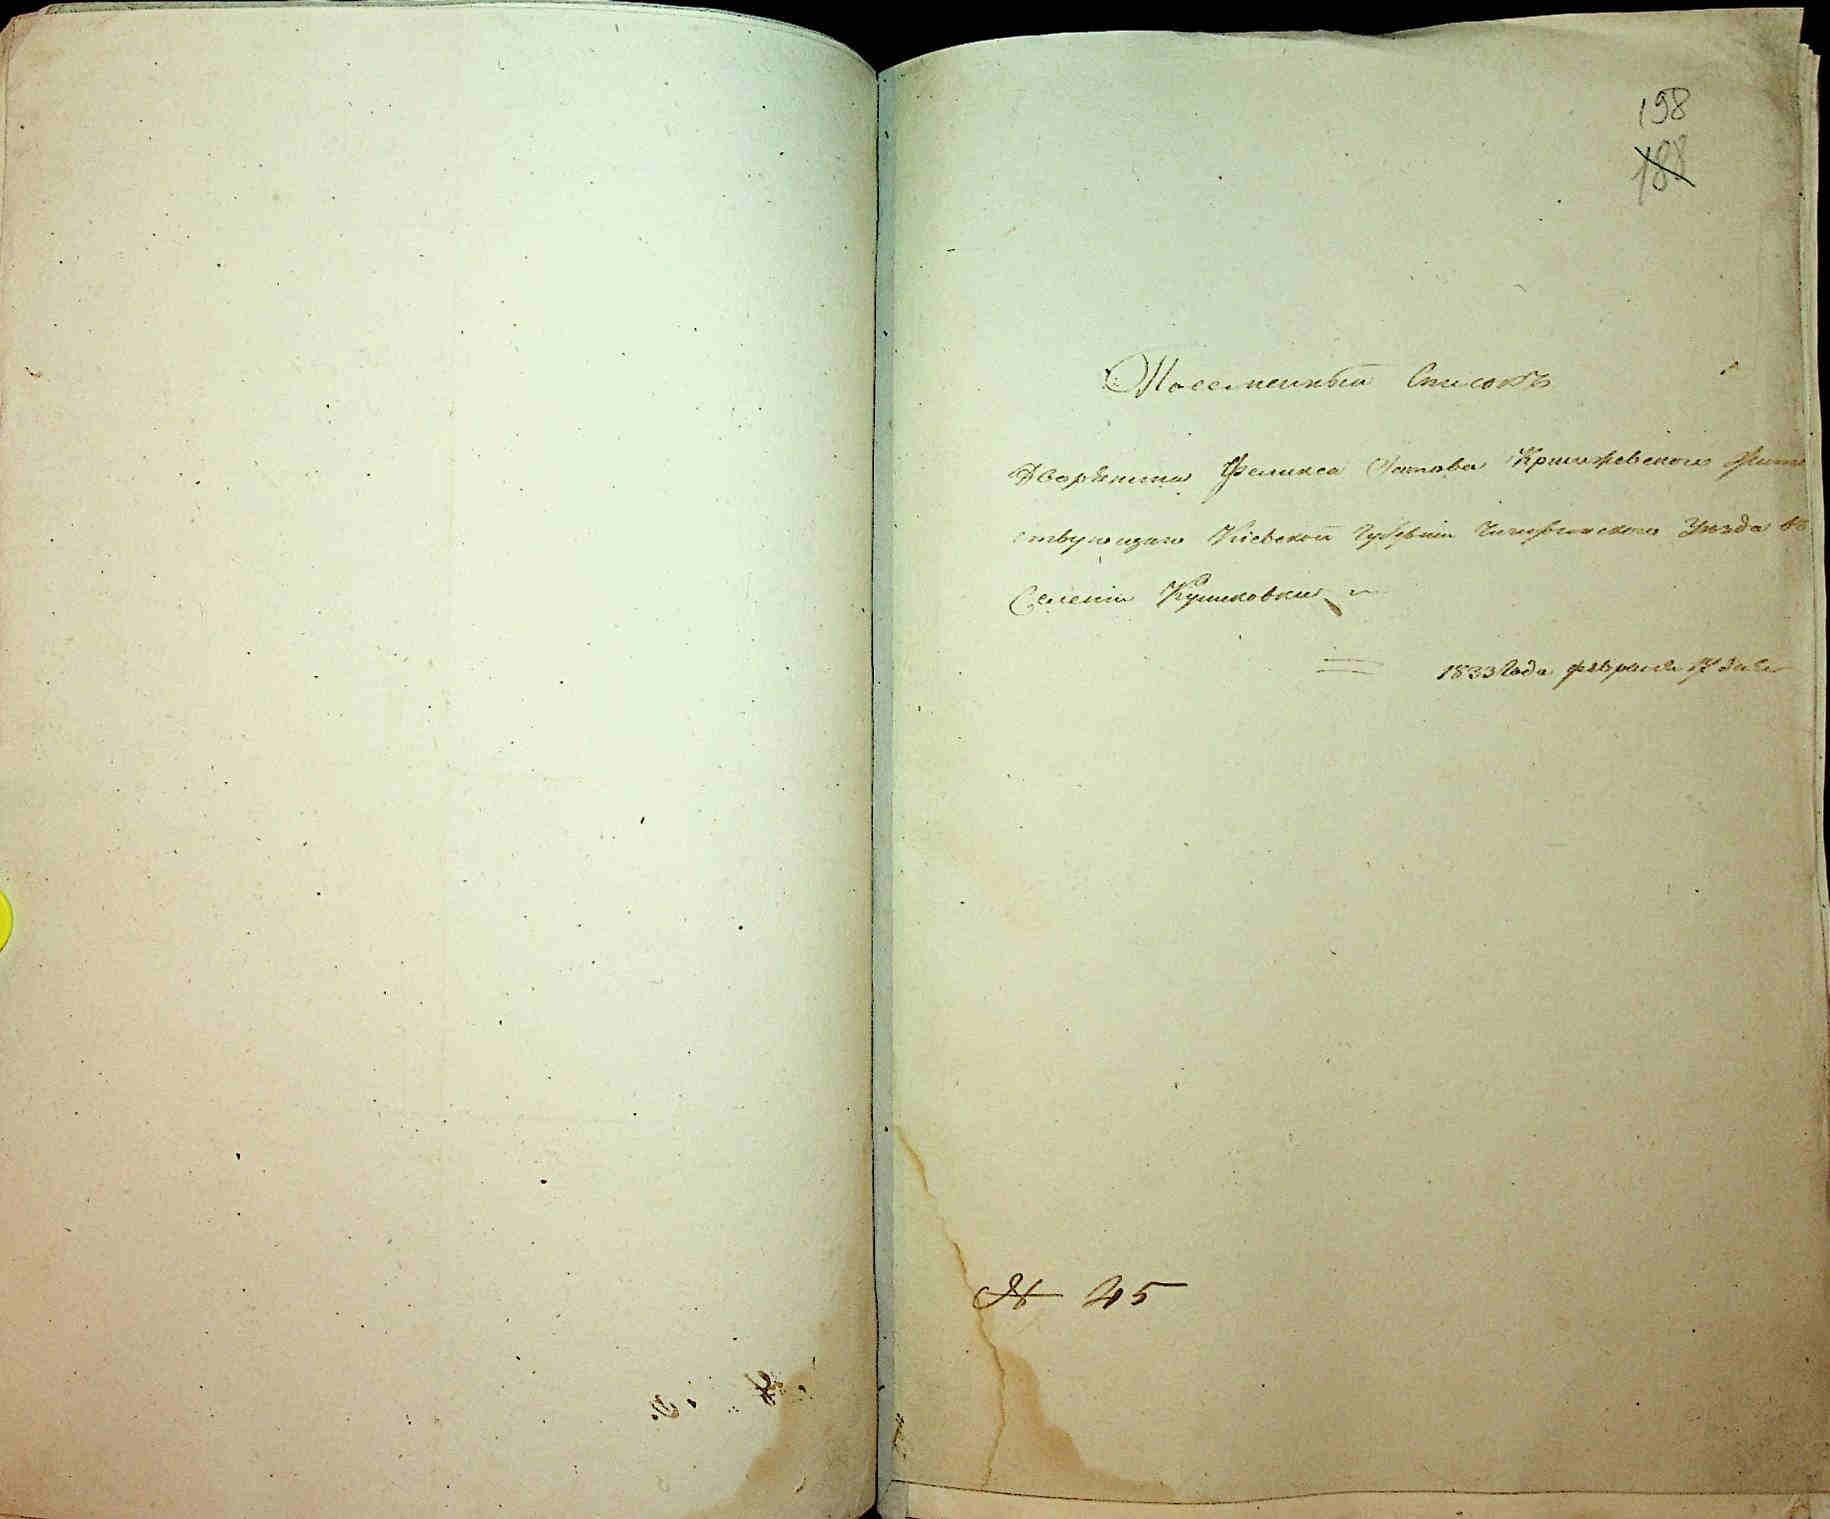 198
188
Посемейный Списокъ
Дворянина Феликса Оттова Кришжевского Жите
ствующаго Кіевской Губерніи Чигиринского Уезда въ
Селеніи Куликовки
1833 Года февраля дня
№ 45